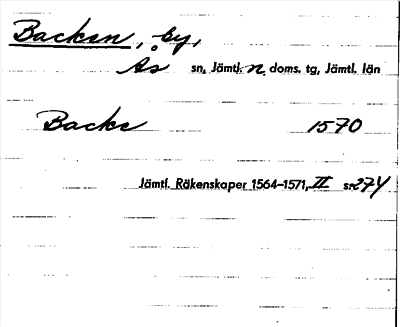 Backen, by,
Ås sn, Jämtl. n. doms. tg, Jämtl. län
Backe 1570
Jämtl. Räkenskaper 1564–1571, II s. 274